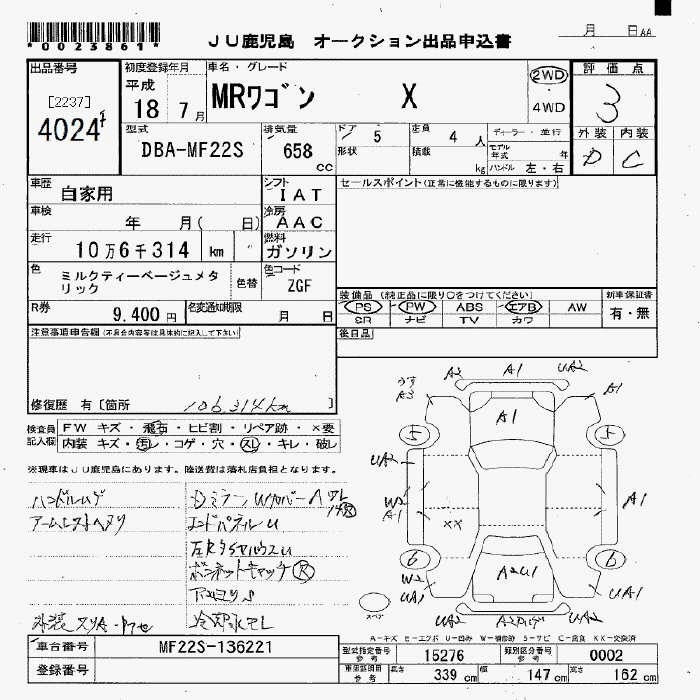 *0023861*
JU鹿児島 オークション出品申込書
月 日 AA
出品番号
[2237]
4024
初度登録年月
平成
18 7月
車名・グレード
MRワゴン X
2WD
4WD
評価点
3
外装 内装
D C
型式
DBA-MF22S
排気量
658 cc
ドア 5
形状
定員 4 人
積載 kg
ディーラー・並行
モデル年式 年
ハンドル 左・右
車歴
自家用
シフト
IAT
車検
年 月( 日)
冷房
AAC
走行
10万6千314 km
燃料
ガソリン
色
ミルクティーベージュメタリック
色替
色コード
ZGF
R券
9,400 円
名変通知期限
月 日
セールスポイント(正常に機能するものに限ります)
装備品(純正品に限り○をつけてください)
PS PW ABS エアB AW
SR ナビ TV カワ
新車保証書
有・無
後日品
注意事項申告欄(不具合内容等は具体的に記入して下さい)
修復歴 有〔箇所 106,314km 〕
検査員記入欄
FW キズ・飛石・ヒビ割・リペア跡・×要
内装 キズ・汚レ・コゲ・穴・スレ・キレ・破レ
※現車はJU鹿児島にあります。陸送費は落札店負担となります。
ハンドルハゲ
アームレストヘタリ
エンドパネルU
ボンネットキャッチ
A2 A1 UA2
うす A3
A1
A1
5 5
UA2
W2 A1
××
A1
6 6
W2
UA1
A2U1
UA1
UA2
スペア
A-キズ E-エクボ U-凹み W-補修跡 S-サビ C-腐食 XX-交換済
車台番号
MF22S-136221
登録番号
型式指定番号 参考
15276
類別区分番号 参考
0002
車両諸元 参考
長さ 339 cm
幅 147 cm
高さ 162 cm